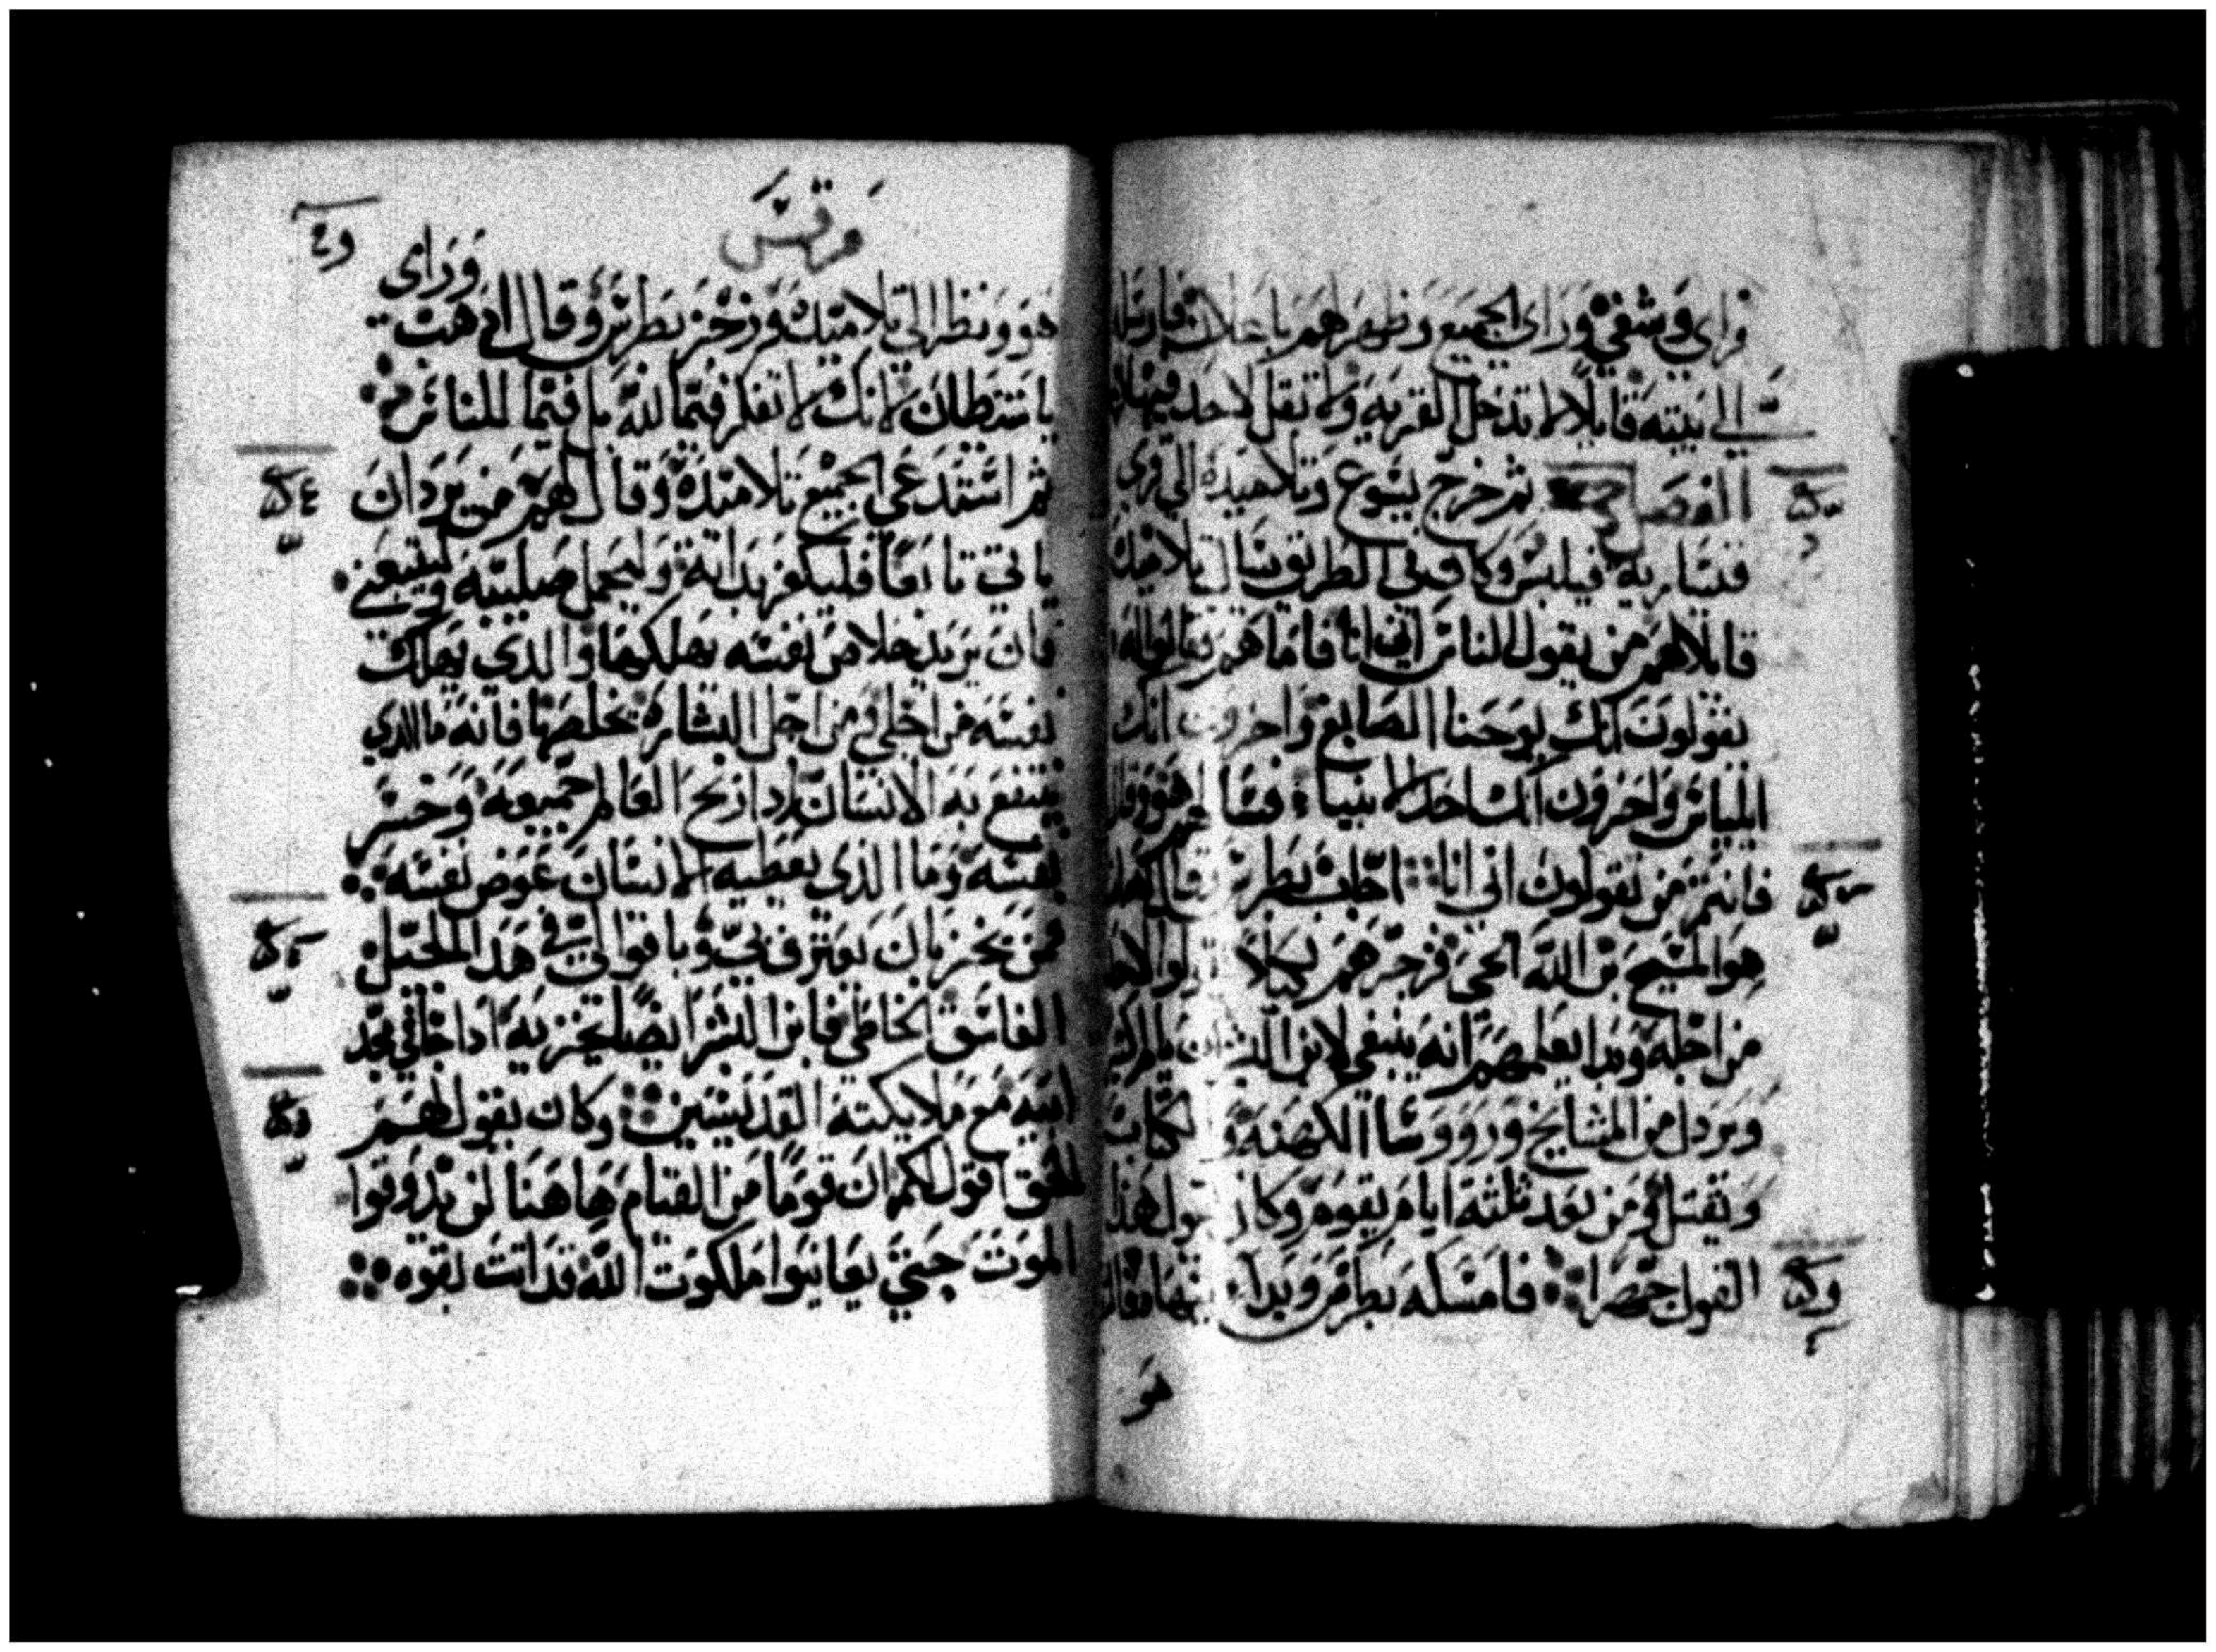 فراى وشفي وراى الجميع وظهر لهم باعلان فارسله
الى بيته قايلا لا تدخل القريه ولا تقل لاحد فيها
الفصل ثم خرج يسوع وتلاميذه الى قرى
قيسارية فيلبس وكان في الطريق يسال تلاميذه
قايلا لهم من يقول الناس اني انا فاما هم فقالوا له
يقولون انك يوحنا الصابغ واخرون انك
ايلياس واخرون انك احد الانبياء فسالهم هو وقال
فانتم من تقولون اني انا اجاب بطرس قايلا
هو المسيح بن الله الحي فزجرهم لكيلا يقولوا لاحد
من اجله وبدا يعلمهم انه ينبغي لابن البشر ان يالم كثيرا
ويرذل من المشايخ وروسا الكهنه والكتاب
ويقتل ومن بعد ثلثة ايام يقوم وكان يقول هذا
القول جهرا فامسكه بطرس وبدا ينهاه فالتفت
هو
مرقس
وراى
هو ونظر الى تلاميذه وزجر بطرس وقال اذهب
يا شيطان لانك لا تفكر فيما لله بل فيما للناس
ثم استدعى الجميع تلاميذه وقال لهم من يرد ان
ياتي تابعا فليكفر بذاته وليحمل صليبه ويتبعني
فان من يريد خلاص نفسه يهلكها والذي يهلك
نفسه من اجلي ومن اجل البشارة يخلصها فانه ما الذي
ينتفع به الانسان اذا ربح العالم جميعه وخسر
نفسه وما الذي يعطيه الانسان عوض نفسه
فمن يخز بان يعترف بي وباقوالي في هذا الجيل
الفاسق الخاطي فابن البشر ايضا يخزيه اذا جا في مجد
ابيه مع ملايكته القديسين وكان يقول لهم
الحق اقول لكم ان قوما من القيام هاهنا لن يذوقوا
الموت حتي يعاينوا ملكوت الله قد اتت بقوه